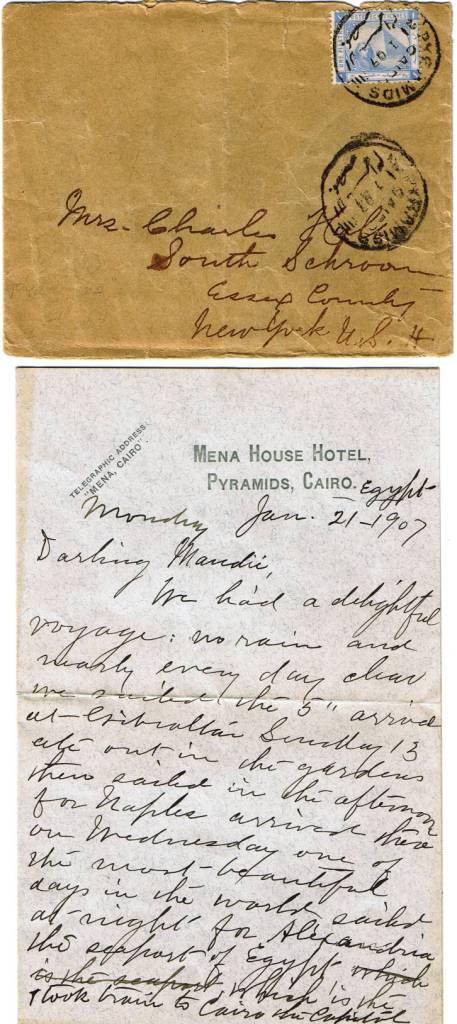 PYRAMIDS
CAIRO
PYRAMIDS
Mrs. Charles
South Schroon
Essex County
New York U.S.A
TELEGRAPHIC ADDRESS
"MENA, CAIRO"
MENA HOUSE HOTEL,
PYRAMIDS, CAIRO. Egypt
Monday Jan. 21-1907
Darling Maudie,
We had a delightful
voyage: no rain and
nearly every day clear
we sailed the 5" arrived
at Gibraltar Sunday 13
ate out in the gardens
then sailed in the afternoon
for Naples arrived there
on Wednesday one of
the most beautiful
days in the world sailed
at night for Alexandria
the seaport of Egypt which
is the seaport which is the
& took train to Cairo the Capitol